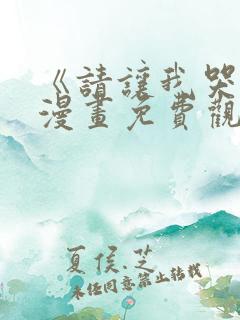 《請讓我哭
漫畫免費觀
夏侯.芝
未經同意禁止轉載